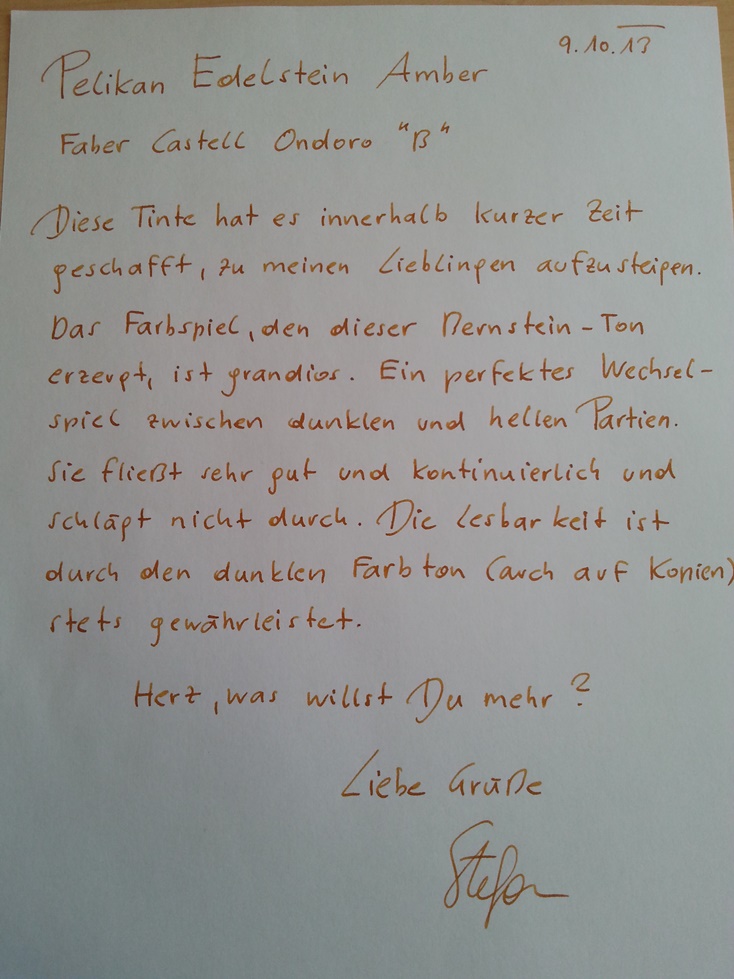 9.10.13
Pelikan Edelstein Amber
Faber Castell Ondoro "B"
Diese Tinte hat es innerhalb kurzer Zeit
geschafft, zu meinen Lieblingen aufzusteigen.
Das Farbspiel, den dieser Bernstein-Ton
erzeugt, ist grandios. Ein perfektes Wechsel-
spiel zwischen dunklen und hellen Partien.
Sie fließt sehr gut und kontinuierlich und
schlägt nicht durch. Die Lesbarkeit ist
durch den dunklen Farbton (auch auf Kopien)
stets gewährleistet.
Herz, was willst Du mehr?
Liebe Grüße
Stefan